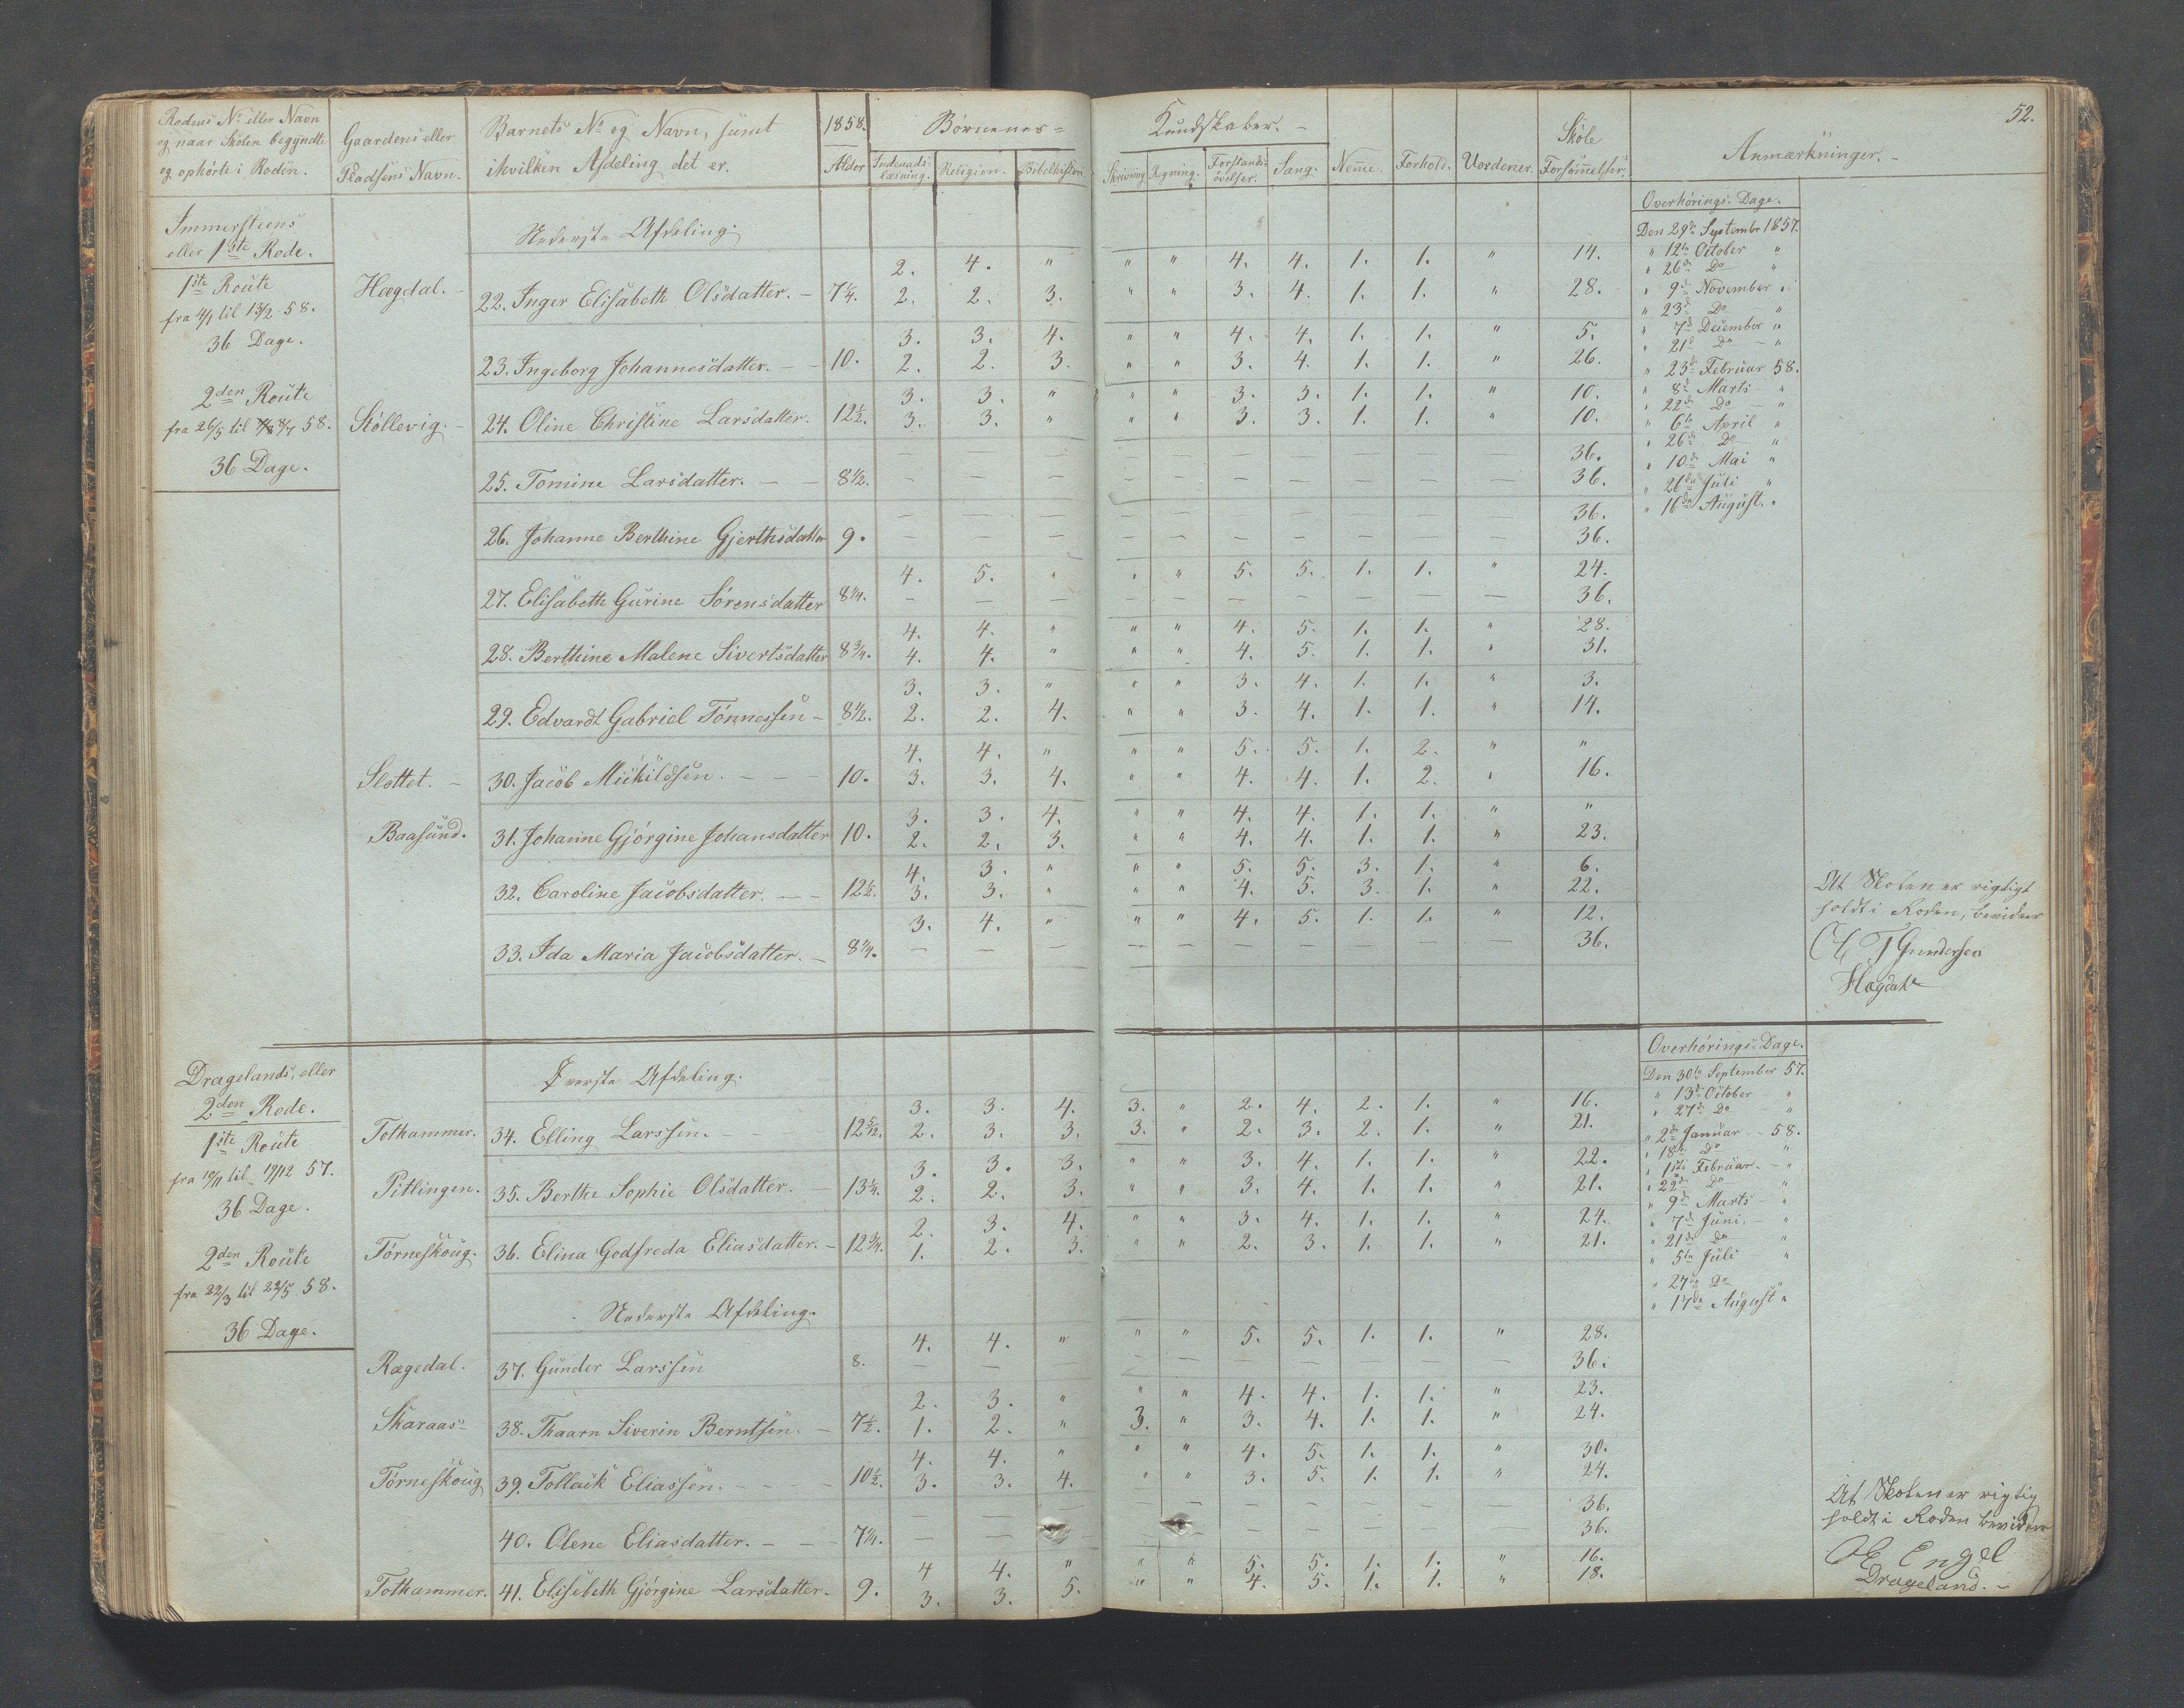 52.
Rodens No eller Navn og naar Skolen begyndte og ophørte i Roden. | Gaardens eller Pladsens Navn. | Barnets No og Navn, samt i hvilken Afdeling det er. | 1858. Alder | Børnenes Kundskaber. | Religion. | Skrivning | Regning. | Forstands-øvelser. | Sang. | Nemme. | Forhold. | Uordener. | Skole Forsømmelser. | Anmærkninger.
Immersteens eller 1ste Rode.
1ste Route
fra 4/1 til 13/2 58.
36 Dage.
2den Route
fra 26/5 til 8/7 58.
36 Dage.
Nederste Afdeling.
2. 4. " " " 4. 4. 1. 1. " 14.
Hægdal. 22. Inger Elisabeth Olsdatter. 7 1/4. 2. 2. 3. " " 3. 4. 1. 1. " 28.
3. 3. 4. " " 4. 4. 1. 1. " 5.
23. Ingeborg Johannesdatter. 10. 2. 2. 3. " " 3. 4. 1. 1. " 26.
3. 3. " " " 3. 3. 1. 1. " 10.
Skøllevig. 24. Oline Christine Larsdatter. 12 1/2. 3. 3. " " " 3. 3. 1. 1. " 10.
— — — — — — — — — — 36.
25. Tomine Larsdatter. 8 1/2. — — — — — — — — — — 36.
— — — — — — — — — — 36.
26. Johanne Berthine Gjerthsdatter 9. — — — — — — — — — — 36.
4. 5. " " " 5. 5. 1. 1. " 24.
27. Elisabeth Gurine Sørensdatter 8 1/4. — — — — — — — — — — 36.
4. 4. " " " 4. 5. 1. 1. " 28.
28. Berthine Malene Sivertsdatter 8 3/4. 4. 4. " " " 4. 5. 1. 1. " 31.
3. 3. " " " 3. 4. 1. 1. " 3.
29. Edvardt Gabriel Tønnessen 8 1/2. 2. 2. 4. " " 3. 4. 1. 1. " 14.
4. 4. " " " 5. 5. 1. 2. " "
Slottet. 30. Jacob Mickildsen. 10. 3. 3. 4. " " 4. 4. 1. 2. " 16.
3. 3. 4. " " 4. 4. 1. 1. " "
Baasund. 31. Johanne Gjørgine Johansdatter 10. 2. 2. 3. " " 4. 4. 1. 1. " 23.
4. 3. " " " 5. 5. 3. 1. " 6.
32. Caroline Jacobsdatter. 12 1/2. 3. 3. " " " 4. 5. 3. 1. " 22.
3. 4. " " " 4. 5. 1. 1. " 12.
33. Ida Maria Jacobsdatter. 8 1/4. — — — — — — — — — — 36.
Overhørings-Dage.
Den 29de Septembr 1857.
" 12te October "
" 26de Do "
" 9de November "
" 23de Do "
" 7de December "
" 21de Do "
" 23de Februar 58.
" 8de Marts "
" 22de Do "
" 6te April "
" 26de Do "
" 10de Mai "
" 26de Juli "
" 16de August. "
At Skolen er rigtigt
holdt i Roden, bevidner
T Gundersen
Hægdal
Dragelands, eller
2den Rode.
1ste Route
fra 10/11 til 19/12 57.
36 Dage.
2den Route
fra 22/3 til 22/5 58.
36 Dage.
Øverste Afdeling.
3. 3. 4. 3. " 2. 4. 2. 1. " 16.
Tothammer. 34. Elling Larssen. 12 5/12. 2. 3. 3. 3. " 2. 3. 2. 1. " 21.
3. 3. 3. " " 3. 4. 1. 1. " 22.
Pitlingen. 35. Berthe Sophie Olsdatter. 13 1/4. 2. 2. 3. " " 3. 4. 1. 1. " 21.
2. 3. 4. " " 3. 4. 1. 1. " 24.
Tørneskoug. 36. Elina Godfreda Eliasdatter. 12 3/4. 1. 2. 3. " " 2. 3. 1. 1. " 21.
Nederste Afdeling.
4. 4. " " " 5. 5. 1. 1. " 28.
Ragedal. 37. Gunder Larssen 8. — — — — — — — — — 36.
2. 3. " " " 4. 4. 1. 1. " 23.
Skaraas 38. Thaarn Siverin Berntsen. 7 1/2. 1. 2. " 3. " 3. 4. 1. 1. " 24.
4. 4. " " " 4. 5. 1. 1. " 30.
Tørneskoug 39. Tollack Eliassen. 10 1/2. 3. 3. 4. " " 3. 5. 1. 1. " 24.
— — — — — — — — — 36.
40. Olene Eliasdatter. 7 1/4. — — — — — — — — 36.
4 4. " " " 5. 5. 1. 1. " 16.
Tothammer. 41. Elisebeth Gjørgine Larsdatter. 9. 3. 3. 5. " " 4. 5. 1. 1. " 18.
Overhørings-Dage.
Den 30te September 57.
" 13de October "
" 27de Do "
" 2den Januar 58.
" 18de Do "
" 1ste Februar. "
" 22de Do "
" 9de Marts "
" 7de Juni. "
" 21de Do "
" 5te Juli "
" 27de Do "
" 17de August "
At Skolen er rigtig
holdt i Roden bevidner
Engel
Drageland.